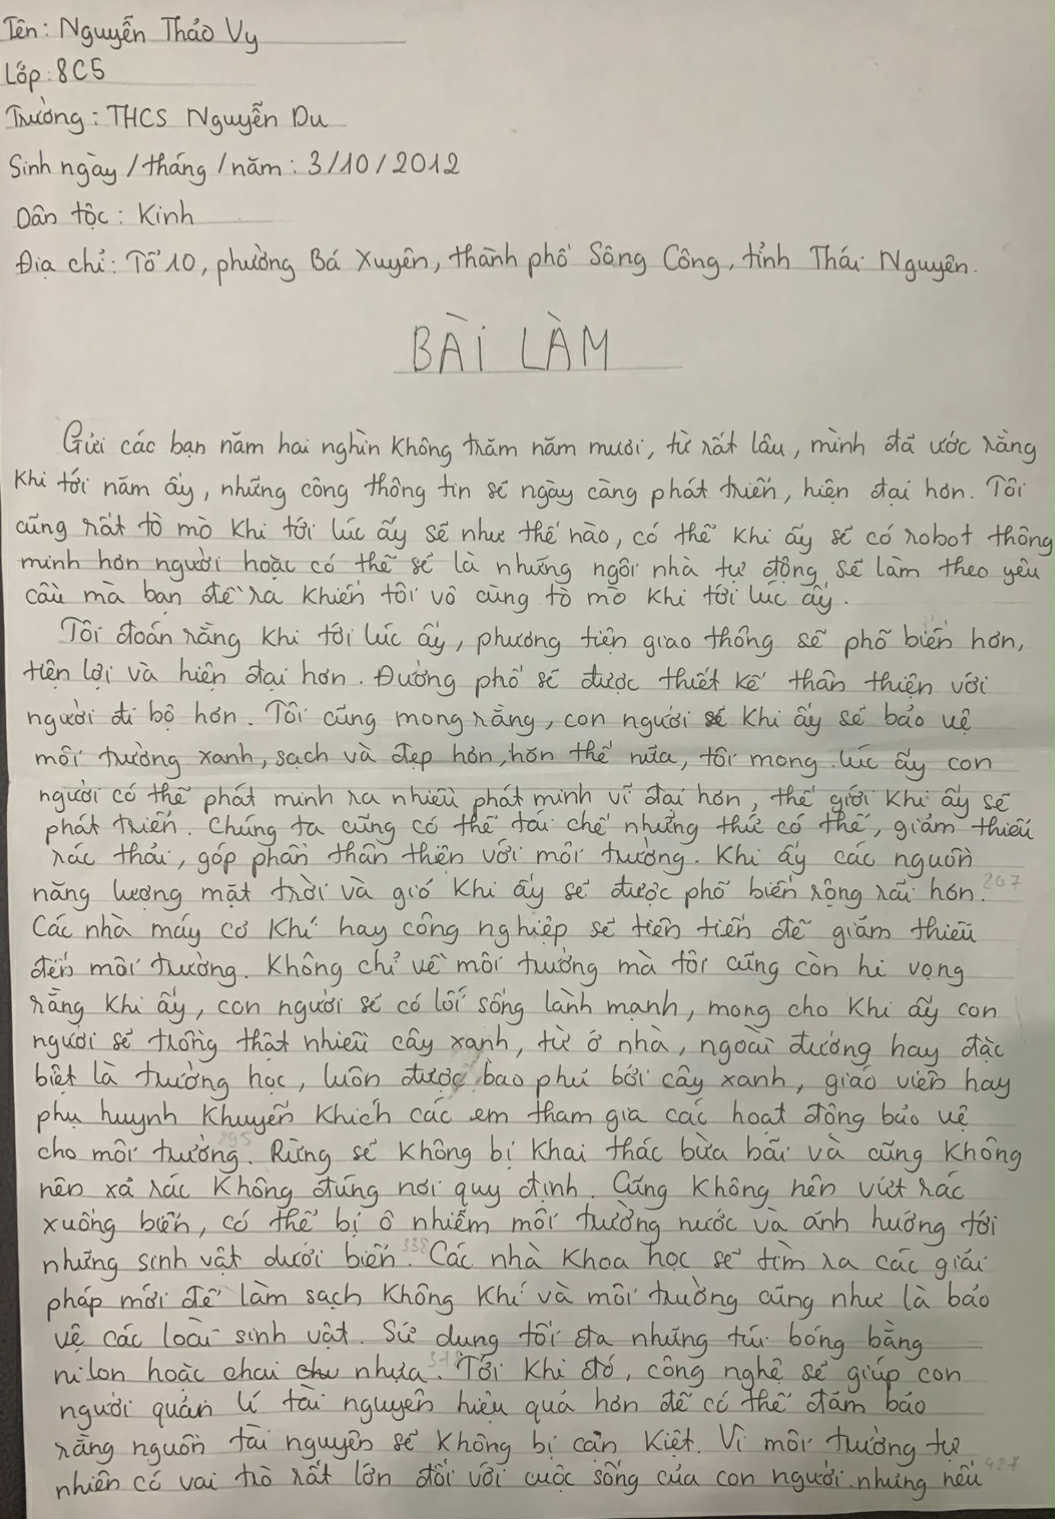 Tên: Nguyễn Thảo Vy
Lớp: 8C5
Trường: THCS Nguyễn Du
Sinh ngày / tháng / năm: 3/10/2012
Dân tộc: Kinh
Địa chỉ: Tổ 10, phường Bá Xuyên, thành phố Sông Công, tỉnh Thái Nguyên.
BÀI LÀM
Gửi các bạn năm hai nghìn không trăm năm mươi, từ rất lâu, mình đã ước rằng
khi tới năm ấy, những công thông tin sẽ ngày càng phát triển, hiện đại hơn. Tôi
cũng rất tò mò khi tới lúc ấy sẽ như thế nào, có thể khi ấy sẽ có robot thông
minh hơn người hoặc có thể sẽ là những ngôi nhà tự động sẽ làm theo yêu
cầu mà bạn đề ra khiến tôi vô cùng tò mò khi tới lúc ấy.
Tôi đoán rằng khi tới lúc ấy, phương tiện giao thông sẽ phổ biến hơn,
tiện lợi và hiện đại hơn. Đường phố sẽ được thiết kế thân thiện với
người đi bộ hơn. Tôi cũng mong rằng, con người khi ấy sẽ bảo vệ
môi trường xanh, sạch và đẹp hơn, hơn thế nữa, tôi mong lúc ấy con
người có thể phát minh ra nhiều phát minh vĩ đại hơn, thế giới khi ấy sẽ
phát triển. Chúng ta cũng có thể tái chế những thứ có thể, giảm thiểu
rác thải, góp phần thân thiện với môi trường. Khi ấy các nguồn
năng lượng mặt trời và gió khi ấy sẽ được phổ biến rộng rãi hơn. 267
Các nhà máy cơ khí hay công nghiệp sẽ tiên tiến để giảm thiểu
đến môi trường. Không chỉ về môi trường mà tôi cũng còn hi vọng
rằng khi ấy, con người sẽ có lối sống lành mạnh, mong cho khi ấy con
người sẽ trồng thật nhiều cây xanh, từ ở nhà, ngoài đường hay đặc
biệt là trường học, luôn được bao phủ bởi cây xanh, giáo viên hay
phụ huynh khuyến khích các em tham gia các hoạt động bảo vệ
cho môi trường. Rừng sẽ không bị khai thác bừa bãi và cũng không
nên xả rác không đúng nơi quy định. Cũng không nên vứt rác
xuống biển, có thể bị ô nhiễm môi trường nước và ảnh hưởng tới
những sinh vật dưới biển. 338 Các nhà khoa học sẽ tìm ra các giải
pháp mới để làm sạch không khí và môi trường cũng như là bảo
vệ các loài sinh vật. Sử dụng tối đa những túi bóng bằng
nilon hoặc chai nhựa. Tới khi đó, công nghệ sẽ giúp con
người quản lí tài nguyên hiệu quả hơn để có thể đảm bảo
rằng nguồn tài nguyên sẽ không bị cạn kiệt. Vì môi trường tự
nhiên có vai trò rất lớn đối với cuộc sống của con người nhưng nếu